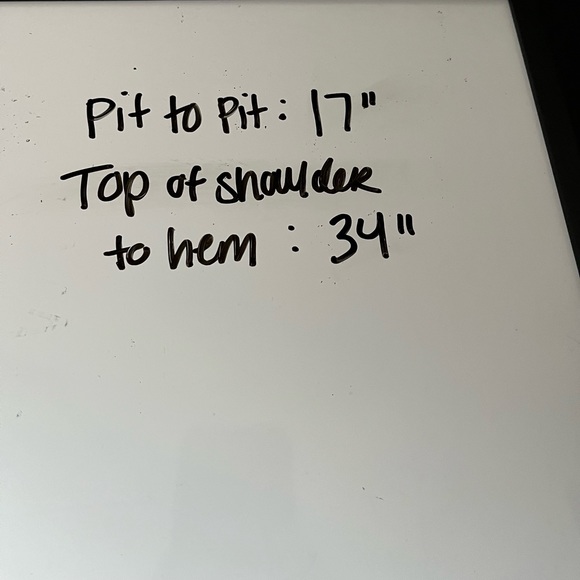 Pit to Pit: 17"
Top of shoulder
to hem : 34"